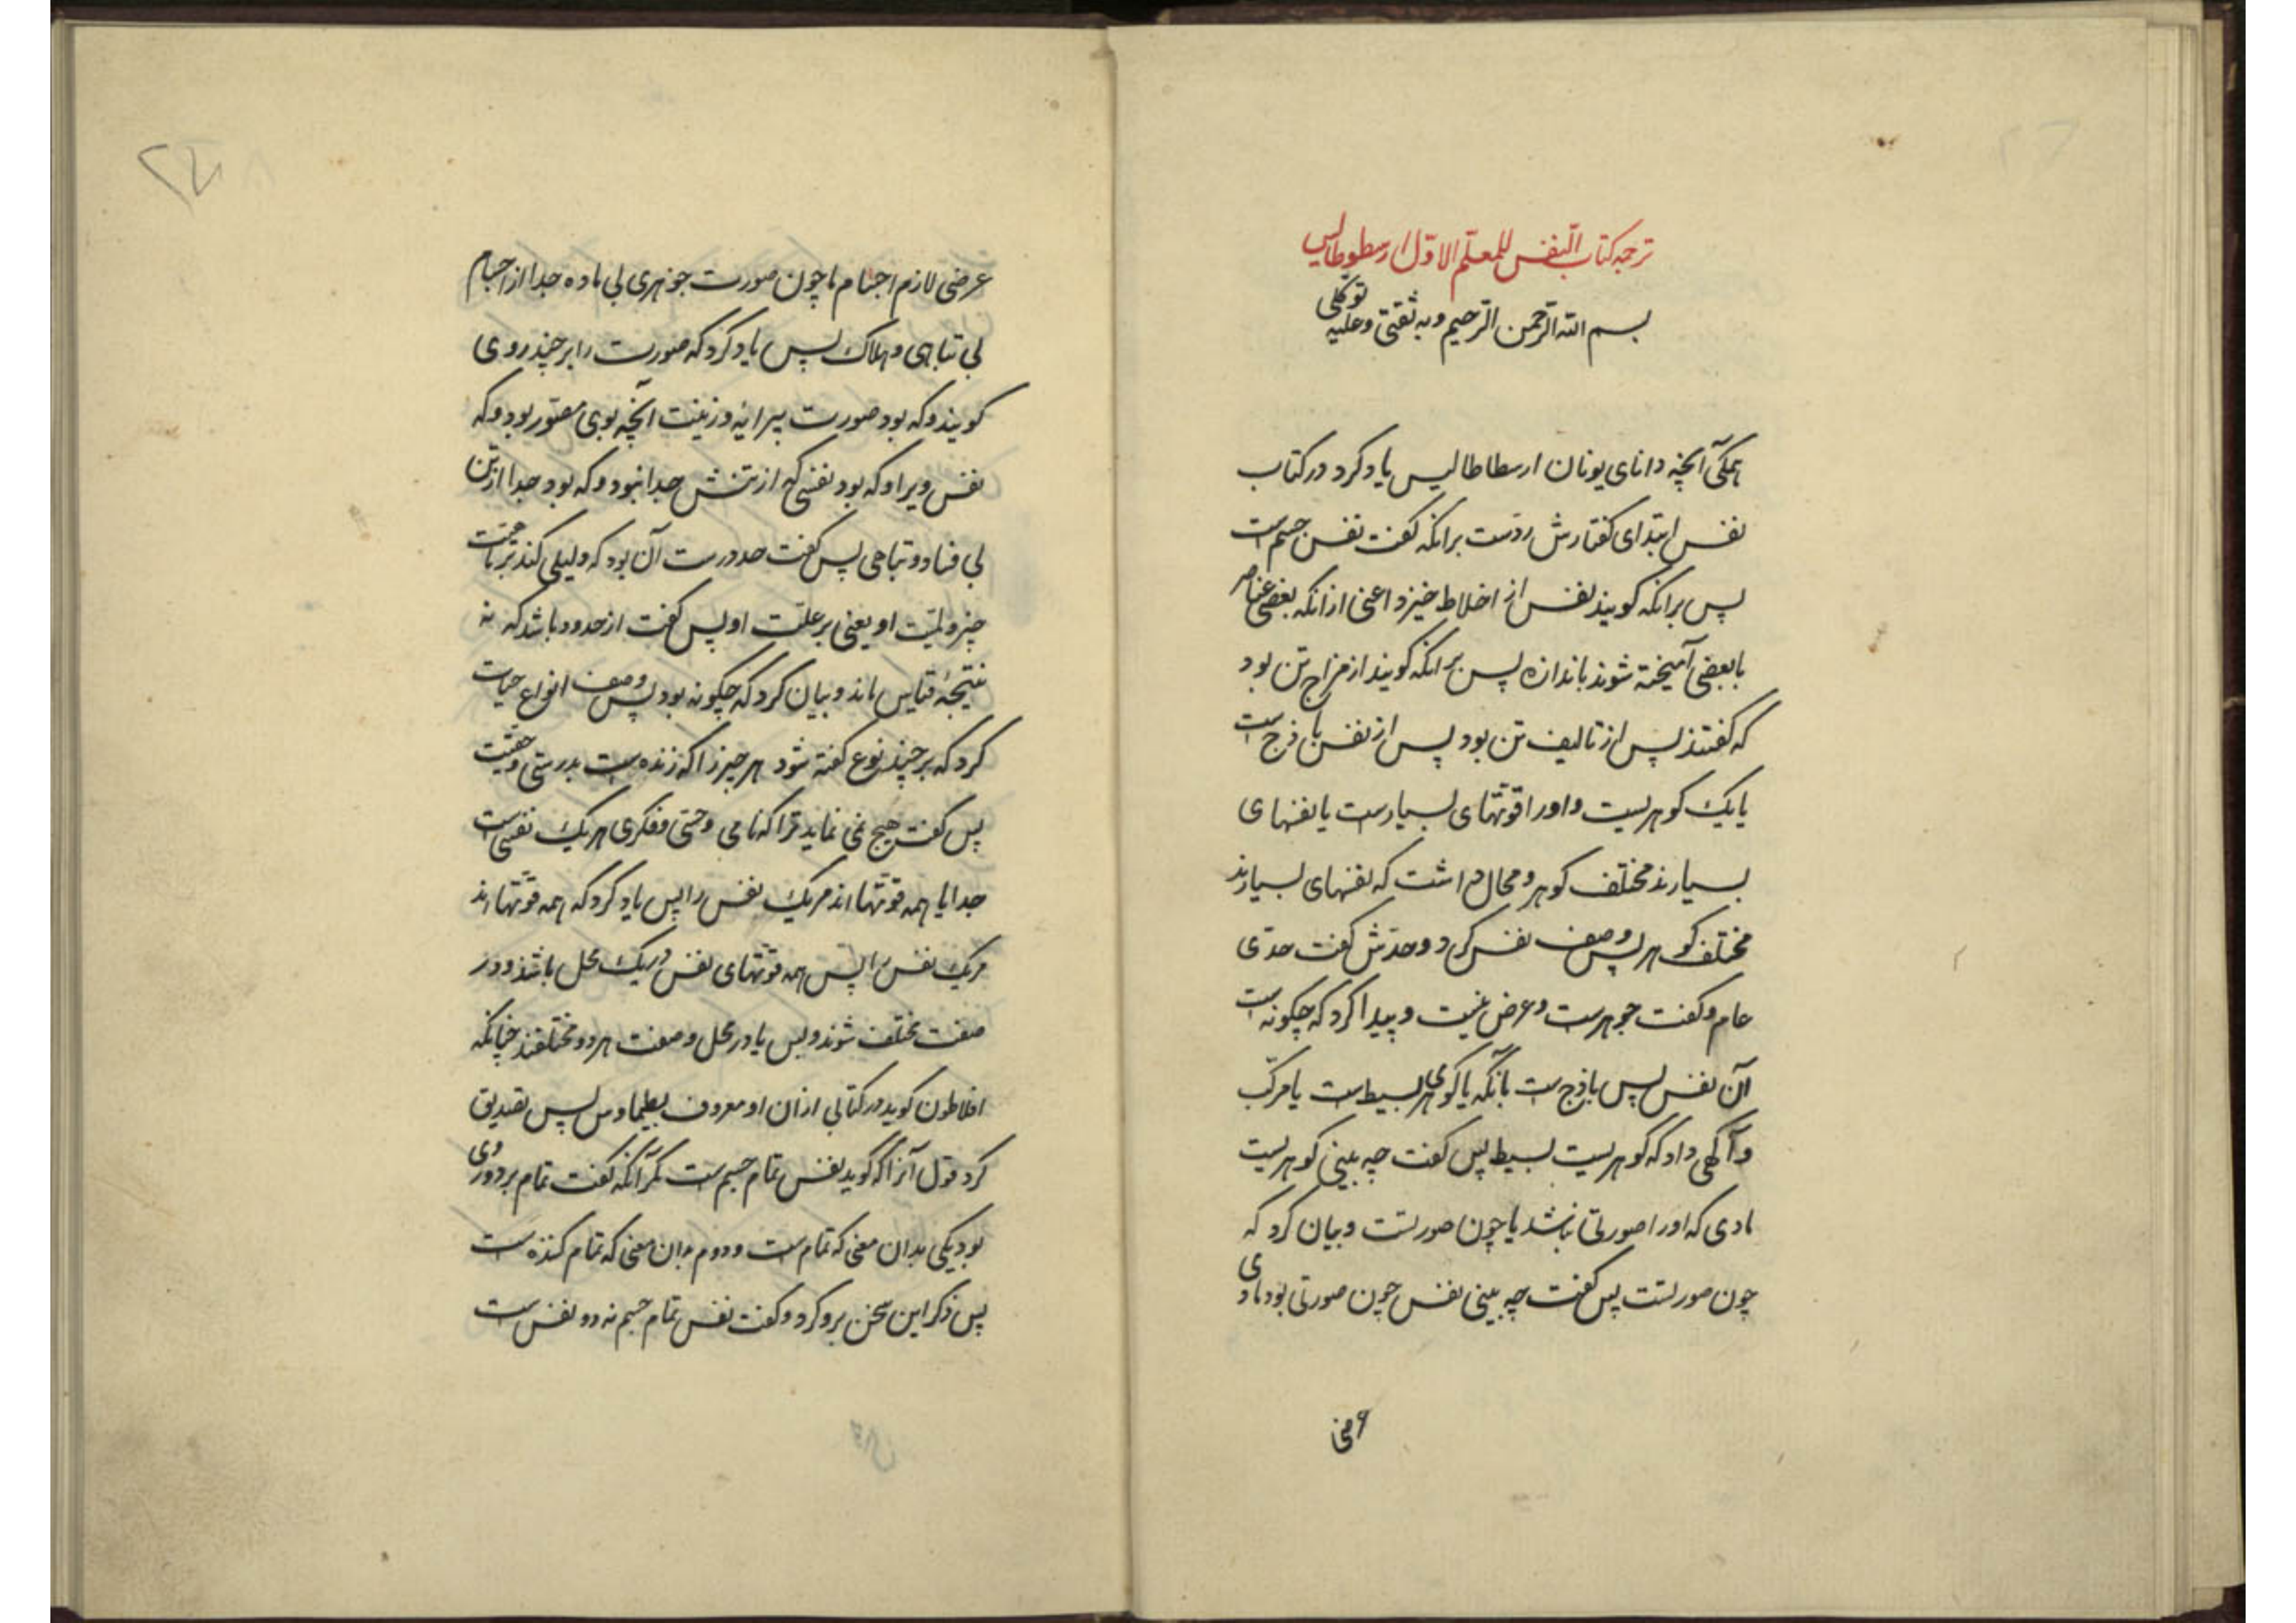 ترجمه کتاب النفس للمعلم الاوّل ارسطوطالیس
بسم الله الرحمن الرحیم وبه ثقتی وعلیه توکلی
همگی آنچه دانای یونان ارسطاطالیس یاد کرد در کتاب
نفس ابتدای گفتارش ردّست برانکه گفت نفس جسم است
پس برانکه گویند نفس از اخلاط خیزد اعنی ازانکه بعضی عناصر
با بعضی آمیخته شوند باندازه پس برانکه گویند از مزاج تن بود
که گفتند پس از تالیف تن بود پس از نفس باز جست
یا یک گوهریست و او را قوّتهای بسیارست یا نفسهای
بسیارند مختلف گوهر و محال داشت که نفسهای بسیارند
مختلف گوهر پس وصف نفس کرد و حدّش گفت حدّی
عام و گفت جوهرست و عرض نیست و پیدا کرد که چگونه است
آن نفس پس باز جست بانکه یا گوهری بسیط ست یا مرکب
و آگهی داد که گوهریست بسیط پس گفت چه بینی گوهریست
مادی که او را صورتی نباشد یا چون صورتست و بیان کرد که
چون صورتست پس گفت چه بینی نفس چون صورتی بود مادی
عرضی
عرضی لازم اجسام یا چون صورت جوهری بی ماده جدا از اجسام
بی تباهی و هلاک پس یاد کرد که صورت را بر چند روی
گویند و که بود صورت پیرایه و زینت آنچه بوی مصوّر بود و که
نفس ویرا و که بود نفسی که از تنش جدا نبود و که بود جدا از تن
بی فساد و تباهی پس گفت حد درست آن بود که دلیلی کند بر ماهیت
چیز و لمیّت او یعنی بر علّت او پس گفت از حدود باشد که نه
نتیجهٔ قیاس ماند و بیان کرد که چگونه بود پس وصف انواع حیات
کرد که بر چند نوع گفته شود هر چیز را که زنده ست بدرستی و حقیقت
پس گفت هیچ می نماید ترا که نامی و حسّی و فکری هر یک نفسی است
جدا یا همه قوّتها اند مر یک نفس را پس یاد کرد که همه قوّتها اند
مر یک نفس را پس همه قوّتهای نفس در یک محل باشند و در
صفت مختلف شوند و بس یا در محل و صفت هر دو مختلفند چنانکه
افلاطون گوید در کتابی ازان او معروف بطیماوس پس تصدیق
کرد قول آنرا که گوید نفس تمام جسم ست مگر آنکه گفت تمام بر دو روی
بود یکی بدان معنی که تمام ست و دوم بدان معنی که تمام کننده ست
پس ذکر این سخن برو کرد و گفت نفس تمام جسم نه دو نفس ست